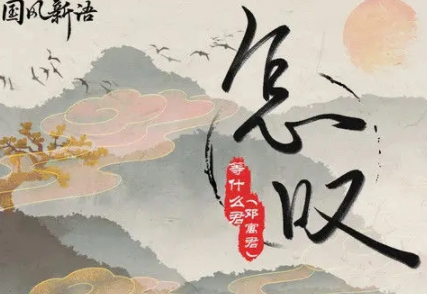 国风新语
怎叹
等什么君
(邓寓君)